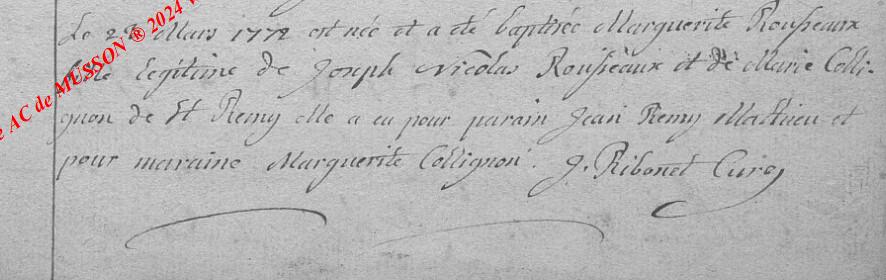 Le 28 Mars 1772 est née et a été baptisée Marguerite Rousseaux
fille legitime de Joseph Nicolas Rousseaux et de Marie Colli-
gnon de St Remy elle a eu pour parain Jean Remy Mathieu et
pour maraine Marguerite Collignon. J. Ribonet Curé
AC de MUSSON ® 2024